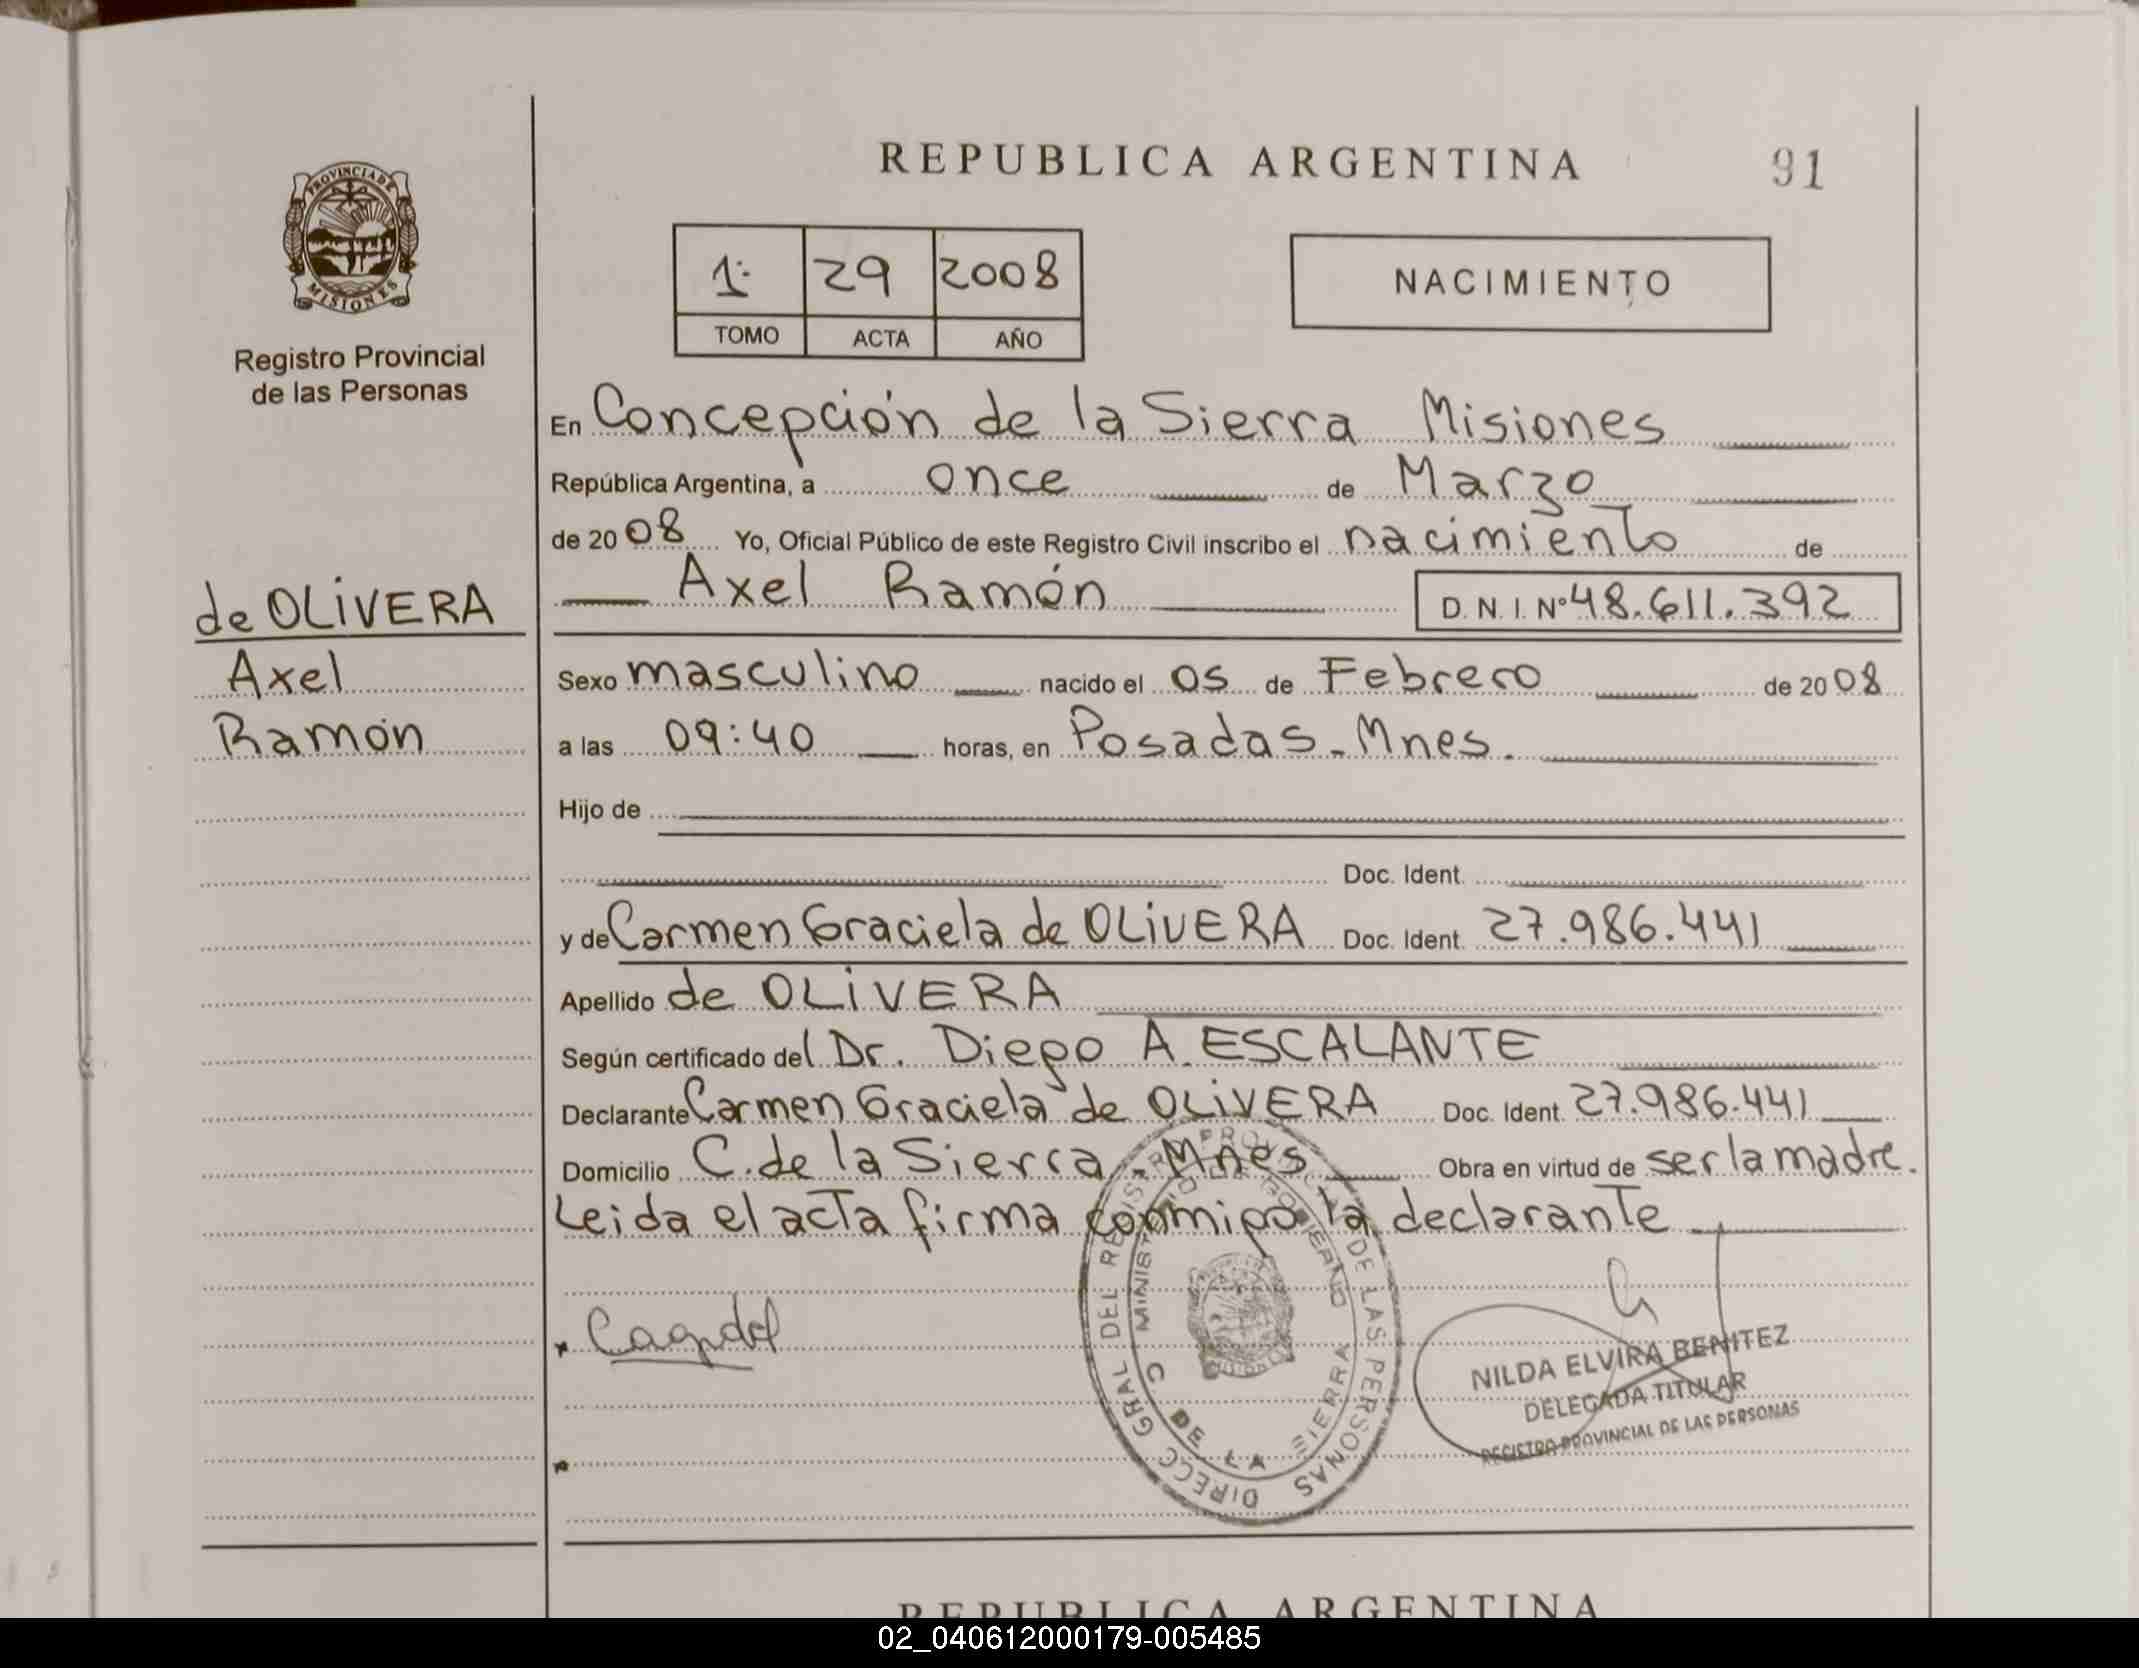 REPUBLICA ARGENTINA
91
PROVINCIA DE
MISIONES
Registro Provincial
de las Personas
1º 29 2008
TOMO ACTA AÑO
NACIMIENTO
En Concepción de la Sierra Misiones
República Argentina, a once de Marzo
de 2008 Yo, Oficial Público de este Registro Civil inscribo el nacimiento de
Axel Ramón D. N. I. Nº 48.611.392
de OLiVERA
Axel
Ramón
Sexo masculino nacido el 05 de Febrero de 2008
a las 09:40 horas, en Posadas - Mnes.
Hijo de
Doc. Ident.
y de Carmen Graciela de OLiVERA Doc. Ident. 27.986.441
Apellido de OLiVERA
Según certificado del Dr. Diego A. ESCALANTE
Declarante Carmen Graciela de OLiVERA Doc. Ident. 27.986.441
Domicilio C. de la Sierra - Mnes Obra en virtud de ser la madre.
Leida el acta firma conmigo la declarante
DIRECC GRAL DEL REGISTRO PROVINCIAL DE LAS PERSONAS
MINISTERIO DE GOBIERNO
C. DE LA SIERRA
NILDA ELVIRA BENITEZ
DELEGADA TITULAR
REGISTRO PROVINCIAL DE LAS PERSONAS
REPUBLICA ARGENTINA
02_040612000179-005485